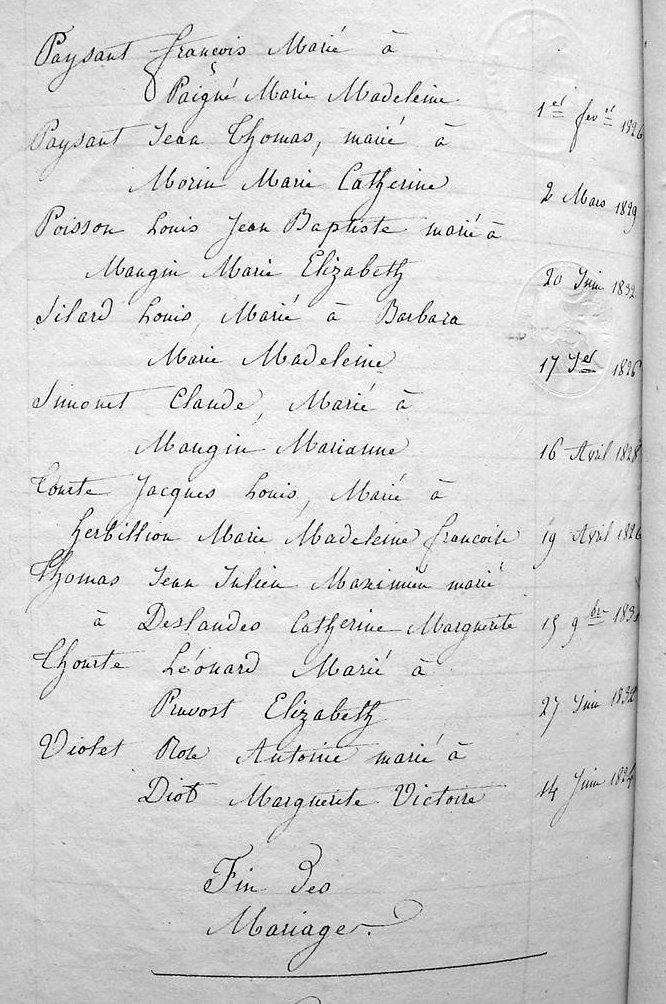 Paysant françois Marié à
Paigné Marie Madeleine 1er fevr 1826
Paysant Jean Thomas, marié à
Morin Marie Catherine 2 Mars 1829
Poisson Louis Jean Baptiste marié à
Mangin Marie Elizabeth 20 Juin 1832
Silard Louis, Marié à Barbara
Marie Madeleine 17 1826
Simonet Claude, Marié à
Mangin Marianne 16 Avril 1828
Tourte Jacques Louis, Marié à
herbillion Marie Madeleine francoise 19 Avril 1826
Thomas Jean Julien Maximien marié
à Deslandes Catherine Marguerite 15 9bre
Thourte Léonard Marié à
Pruvost Elizabeth 27 Juin 1832
Violet Rose Antoine marié à
Diot Marguerite Victoire 14 Juin 1824
Fin des
Mariages.